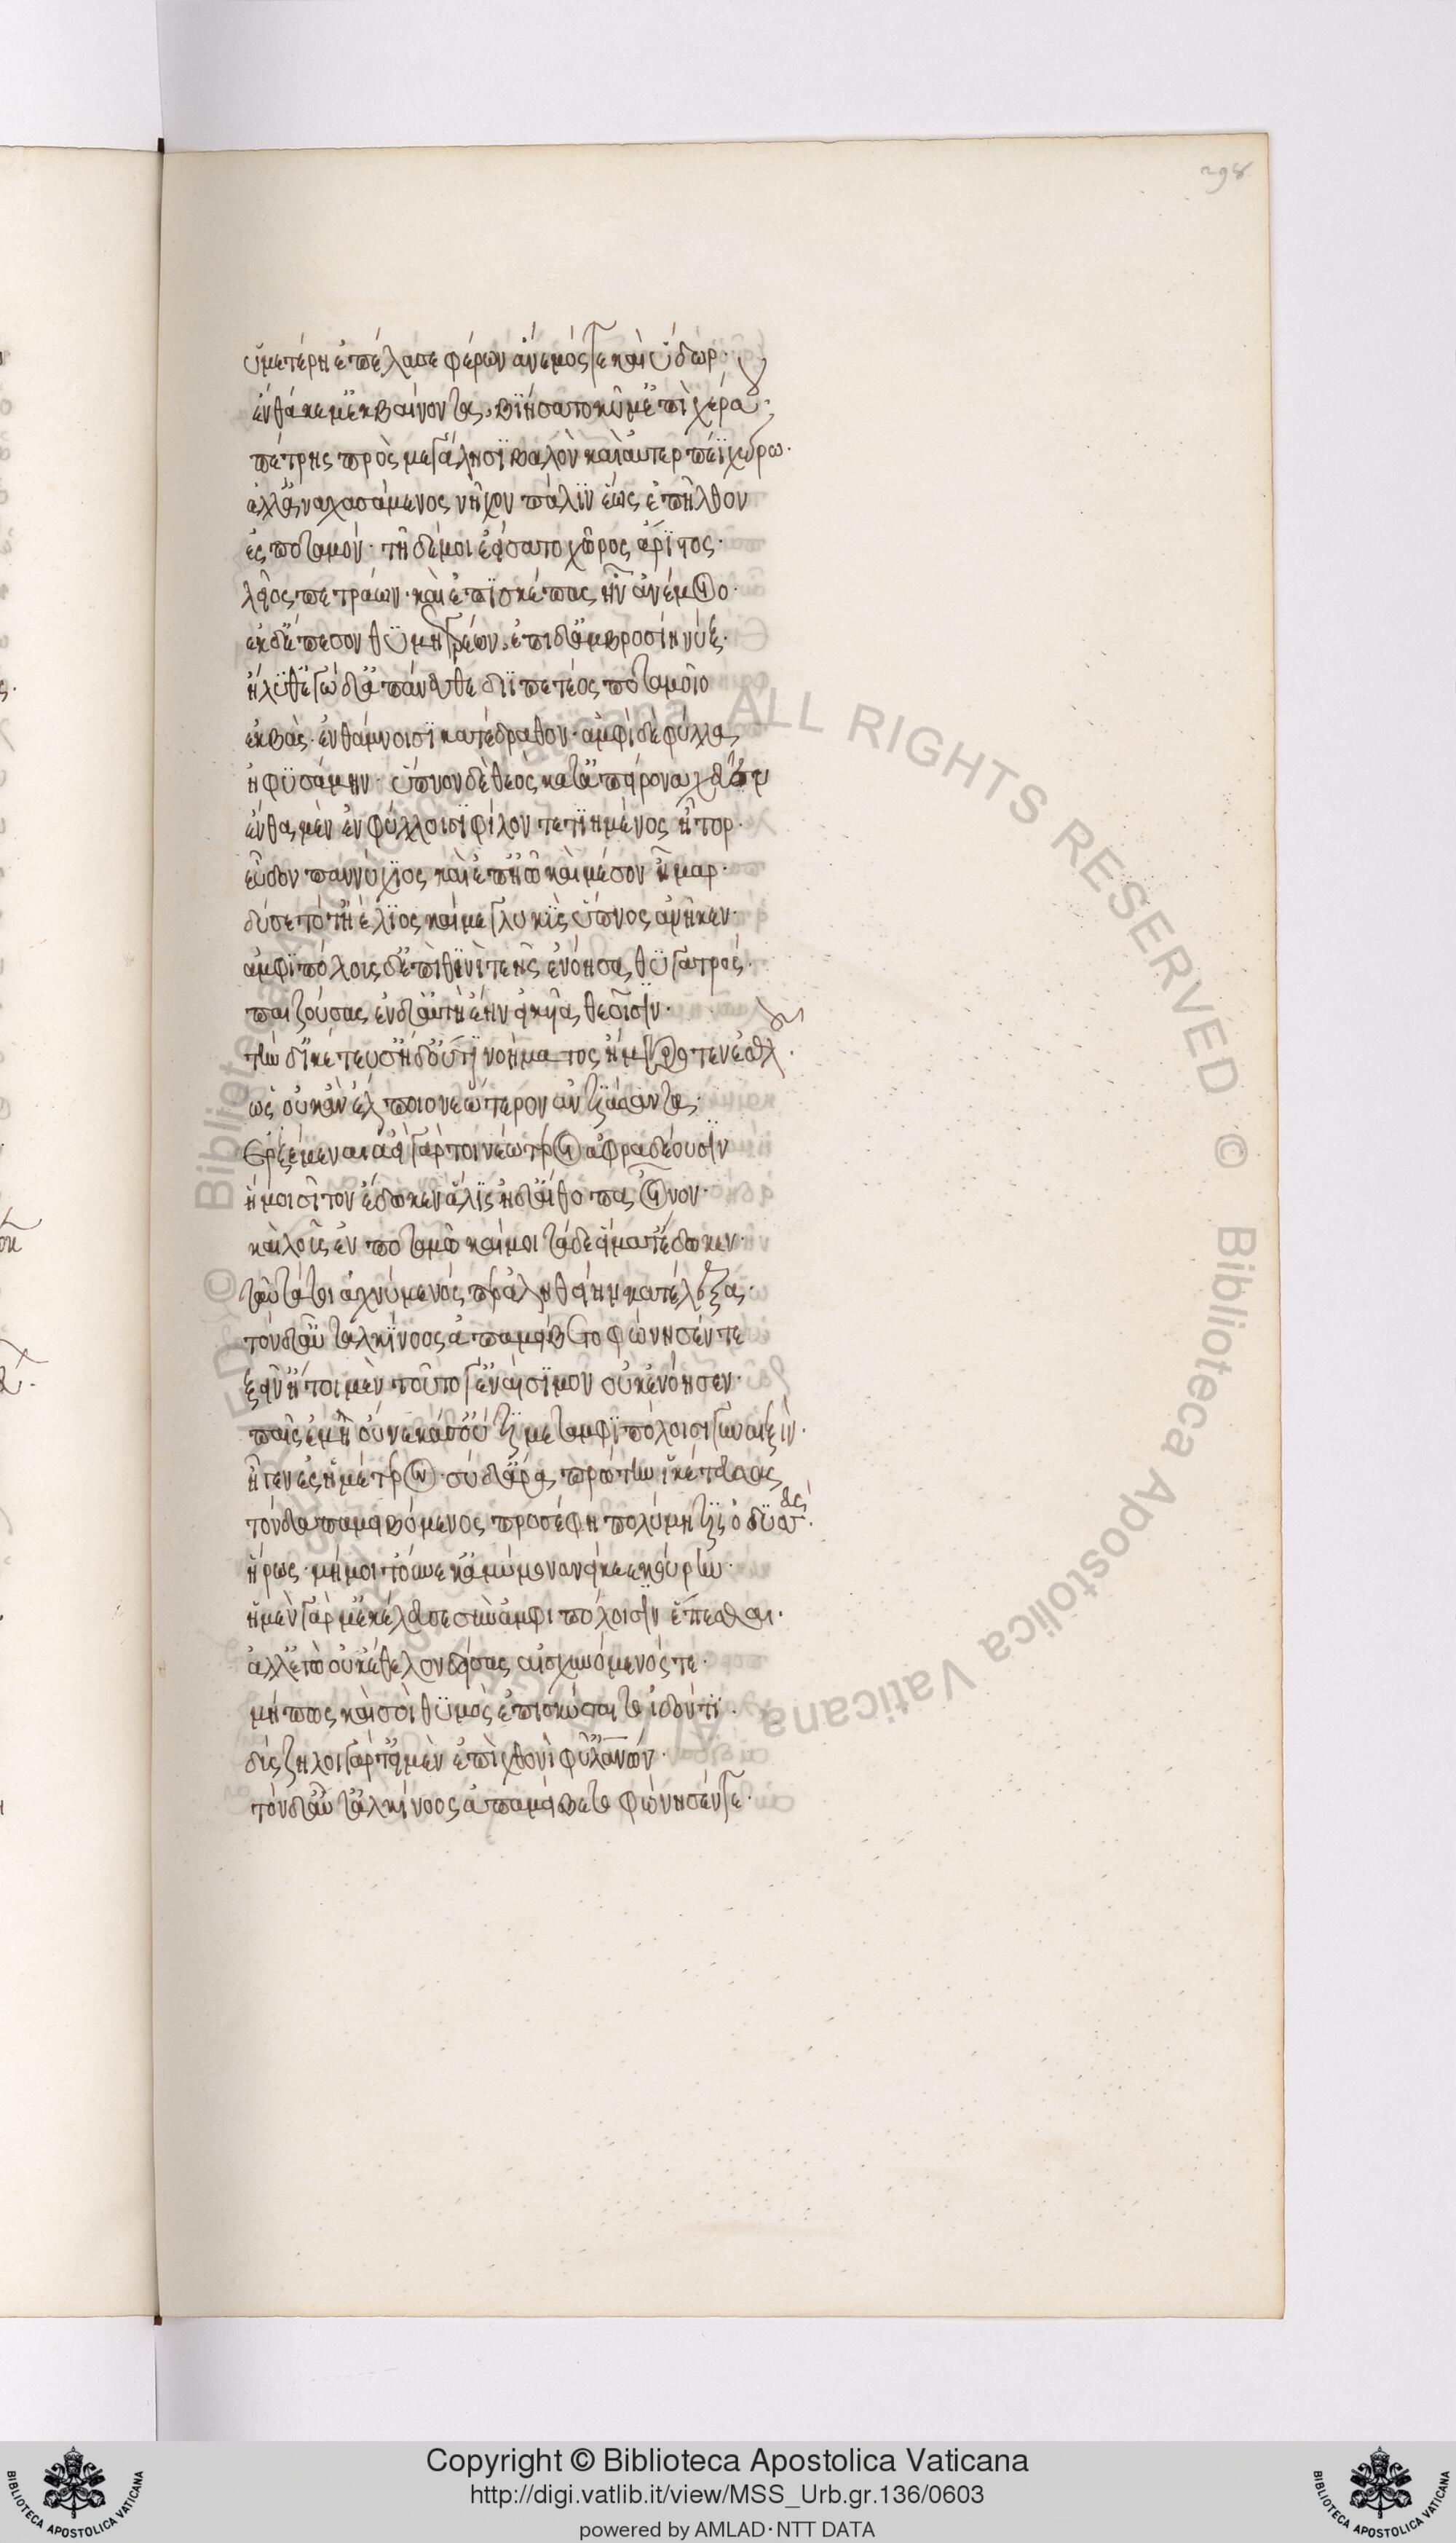 298
ὑμετέρη ἐπέλασε φέρων ἄνεμός τε καὶ ὕδωρ·
ἔνθά κε μ' ἐκβαίνοντα, βιήσατο κῦμ' ἐπὶ χέρσου·
πέτρης πρὸς μεγάλησι βαλὸν καὶ ἀτερπέι χώρω·
ἀλλ' ἀναχασάμενος νῆχον πάλιν ἕως ἐπῆλθον
ἐς ποταμόν· τῆ δέ μοι ἐείσατο χῶρος ἄριστος·
λεῖος πετράων· καὶ ἐπὶ σκέπας ἦν ἀνέμοιο·
ἐκ δ' ἔπεσον θυμηγρέων· ἐπὶ δ' ἀμβροσίη νύξ·
ἤλυθ' ἐγὼ δ' ἀπάνευθε διιπετέος ποταμοῖο
ἐκβὰς· ἐν θάμνοισι κατέδραθον· ἀμφὶ δὲ φύλλα
ἠφυσάμην· ὕπνον δὲ θεὸς κατ' ἀπείρονα χεῦεν
ἔνθα μὲν ἐν φύλλοισι φίλον τετιημένος ἦτορ·
εὗδον παννύχιος καὶ ἐπ' ἠῶ καὶ μέσον ἦμαρ·
δύσετό τ' ἠέλιος καί με γλυκὺς ὕπνος ἀνῆκεν·
ἀμφιπόλους δ' ἐπὶ θινὶ τεῆς ἐνόησα θυγατρός·
παιζούσας ἐν δ' αὐτὴ ἔην εἰκυῖα θεῆσιν·
τὴν δ' ἱκέτευσ' ἡ δ' οὔτι νοήματος ἤμβροτεν ἐσθλοῦ·
ὡς οὐκ ἂν ἔλποιο νεώτερον ἀντιάσαντα·
ἐρξέμεν αἰεὶ γάρ τοι νεώτεροι ἀφραδέουσιν
ἥ μοι σῖτον ἔδωκεν ἅλις ἠδ' αἴθοπα οἶνον·
καὶ λοῦσ' ἐν ποταμῶ καί μοι τάδε εἵματ' ἔδωκεν·
ταῦτά τοι ἀχνύμενός περ ἀληθείην κατέλεξα·
τὸν δ' αὖτ' ἀλκίνοος ἀπαμείβετο φώνησέν τε
ξεῖν' ἤτοι μὲν τοῦτό γ' ἐναίσιμον οὐκ ἐνόησεν·
παῖς ἐμὴ οὕνεκά σ' οὔτι μετ' ἀμφιπόλοισι γυναιξίν·
ἦγεν ἐς ἡμετέρων· σὺ δ' ἄρα πρώτην ἱκέτευσας
τὸν δ' ἀπαμειβόμενος προσέφη πολύμητις ὀδυσσεύς·
ἥρως· μή μοι τοὔνεκ' ἀμύμονα νείκεε κούρην·
ἡ μὲν γάρ μ' ἐκέλευσε σὺν ἀμφιπόλοισιν ἕπεσθαι·
ἀλλ' ἐγὼ οὐκ ἔθελον δείσας αἰσχυνόμενός τε·
μή πως καὶ σοὶ θυμὸς ἐπισκύσαιτο ἰδόντι·
δύσζηλοι γάρ τ' εἰμὲν ἐπὶ χθονὶ φῦλ' ἀνθρώπων·
τὸν δ' αὖτ' ἀλκίνοος ἀπαμείβετο φώνησέν τε·
Copyright © Biblioteca Apostolica Vaticana
http://digi.vatlib.it/view/MSS_Urb.gr.136/0603
powered by AMLAD·NTT DATA